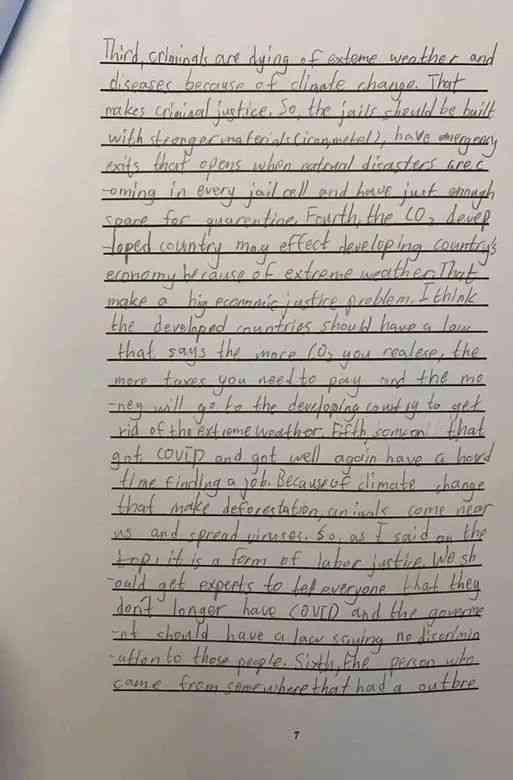 Third, criminals are dying of exteme weather and
diseases because of climate change. That
makes criminal justice. So, the jails should be built
with stronger materials(iron,metal), have emergency
exits that opens when natrual disasters are c
-oming in every jail cell and have just enough
space for quarentine. Fourth, the CO2 devep
-loped country may effect developing country's
economy because of extreme weather. That
make a big economic justice problem. I think
the developed countries should have a law
that says the more CO2 you realese, the
more taxes you need to pay and the mo
-ney will go to the developing country to get
rid of the extreme weather. Fifth, someone that
got COVID and got well again have a hard
time finding a job. Because of climate change
that make deforestation, animals come near
us and spread viruses. So, as I said on the
top, it is a form of labor justice. We sh
-ould get experts to tell everyone that they
don't longer have COVID and the governme
-nt should have a law saying no discrimin
-ation to those people. Sixth, the person who
came from somewhere that had a outbre
7